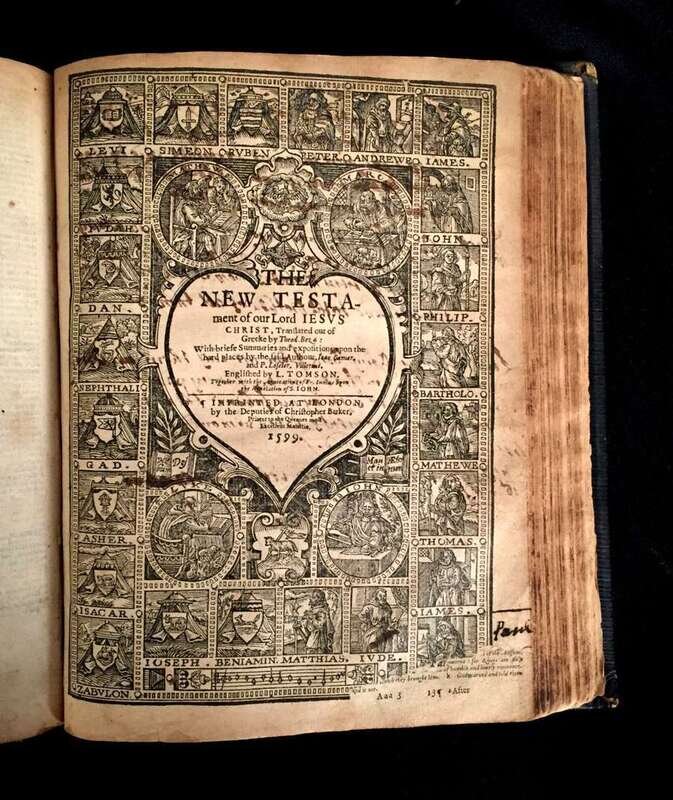 LEVI. SIMEON. RVBEN. PETER. ANDREWE. IAMES.
MARC
IVDAH.
IOHN.
DAN.
PHILIP.
NEPHTHALI
BARTHOLO.
GAD.
MATHEWE
ASHER.
THOMAS.
ISACAR.
IAMES.
ZABVLON.
IOSEPH. BENIAMIN. MATTHIAS. IVDE.
THE
NEW TESTA-
ment of our Lord IESVS
CHRIST, Translated out of
Greeke by Theod. Beza:
With briefe Summaries and expositions upon the
hard places by the said Authour, Ioac. Camer.
and P. Loseler, Villerius.
Englished by L. TOMSON.
Together with the Annotations of Fr. Iunius upon
the Revelation of S. IOHN.
IMPRINTED AT LONDON
by the Deputies of Christopher Barker,
Printer to the Queenes most
Excellent Maiestie.
1599.
IOHN
Paul
Aaa 3
After